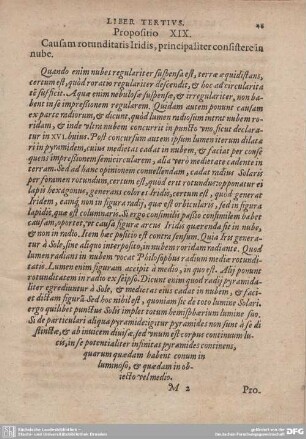 LIBER TERTIVS. 46
Propositio XIX.
Causam rotunditatis Iridis, principaliter consistere in
nube.
Quando enim nubes regulariter suspensa est, terræ æquidistans,
certum est, quòd roratio regulariter descendit, & hoc ad circularita
tẽ sufficit. Atque enim nebulosæ suspensæ, & irregulariter, non ha-
bent in se impressionem regularem. Quidam autem ponunt causam
ex parte radiorum, & dicunt, quòd lumen radiosum intrat nubem ro-
ridam, & inde vltra nubem concurrit in puncto
in XVI. huius. Post concursum autem ipsum lumen iterum dilata
ri in pyramidem, cuius medietas cadat in nubem, & faciat per conse
quens impressionem semicircularem, alia verò medietate cadente in
terram. Sed ad hanc opinionem conuellendam, cadat radius Solaris
per foramen rotundum, certum est, quòd erit rotundus: opponatur ei
lapis hexagonus, generans colores Iridis, certum est, quòd generat
Iridem, eamq́; non in figura radij, quæ est orbicularis, sed in figura
lapidis, quæ est columnaris. Si ergo consimilis passio consimilem habet
causam, oportet, vt causa figuræ arcus Iridis quærenda sit in nube,
& non in radio. Item hæc positio est contra sensum. Quia Iris genera-
tur à Sole, sine aliquo interposito, in nubem roridam radiante. Quod
lumen radians in nubem vocat Philosophus radium mediæ rotundi-
tatis. Lumen enim figuram accipit à medio, in quo est. Alij ponunt
rotunditatem in radio ex seipso. Dicunt enim quòd radij pyramida-
liter egrediuntur à Sole, & medietas eius cadat in nubem, & faci-
et dictam figurã. Sed hoc nihil est, quoniam sic de toto lumine Solari.
ergo quilibet punctus Solis implet totum hemisphærium lumine suo.
Si de particulari aliqua pyramide: igitur pyramides non sunt à se di
stinctæ, & ab inuicem diuisæ: sed vnum est corpus continuum lu-
cis, in se potentialiter infinitas pyramides continens,
quarum quædam habent conum in
luminoso, & quædam in ob-
iecto vel medio.
M 2 Pro.
Sächsische Landesbibliothek –
Staats- und Universitätsbibliothek Dresden
gefördert von der
Deutschen Forschungsgemeinschaft
DFG